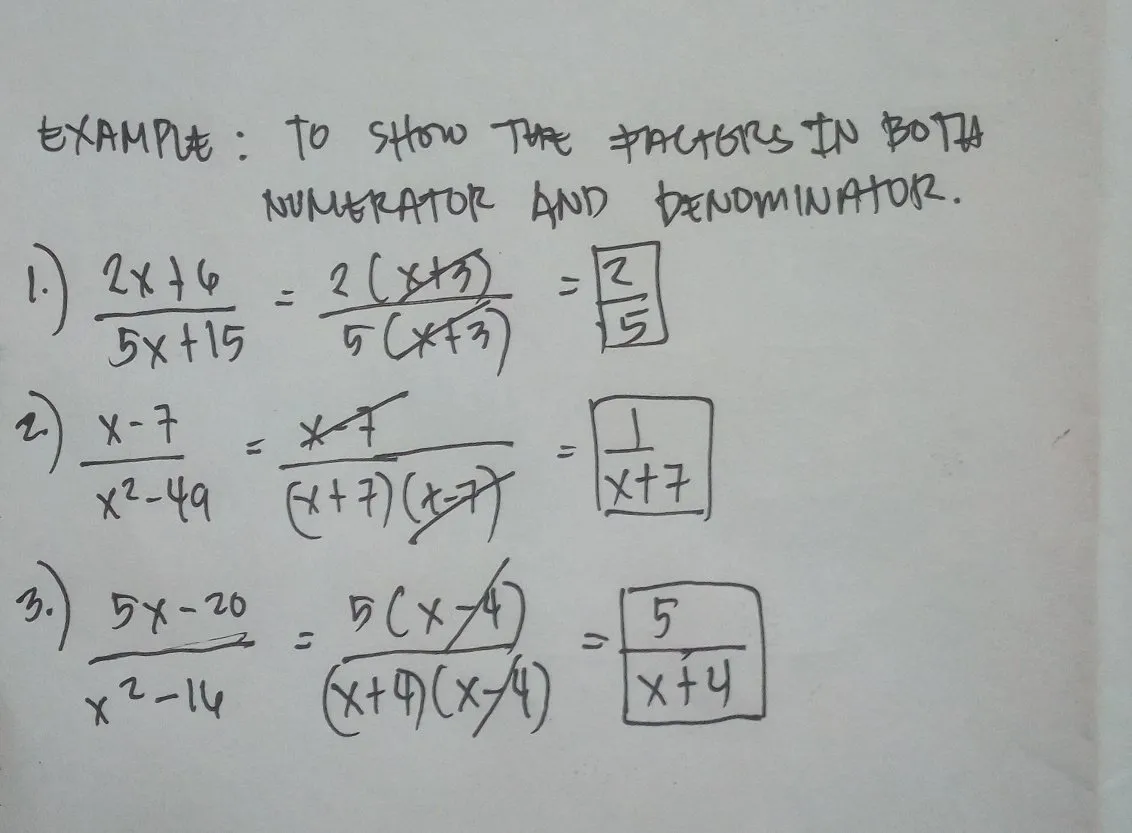 EXAMPLE: TO SHOW THE FACTORS IN BOTH
NUMERATOR AND DENOMINATOR.
1.) (2x+6)/(5x+15) = 2(x+3)/5(x+3) = 2/5
2.) (x-7)/(x²-49) = (x-7)/(x+7)(x-7) = 1/(x+7)
3.) (5x-20)/(x²-16) = 5(x-4)/(x+4)(x-4) = 5/(x+4)